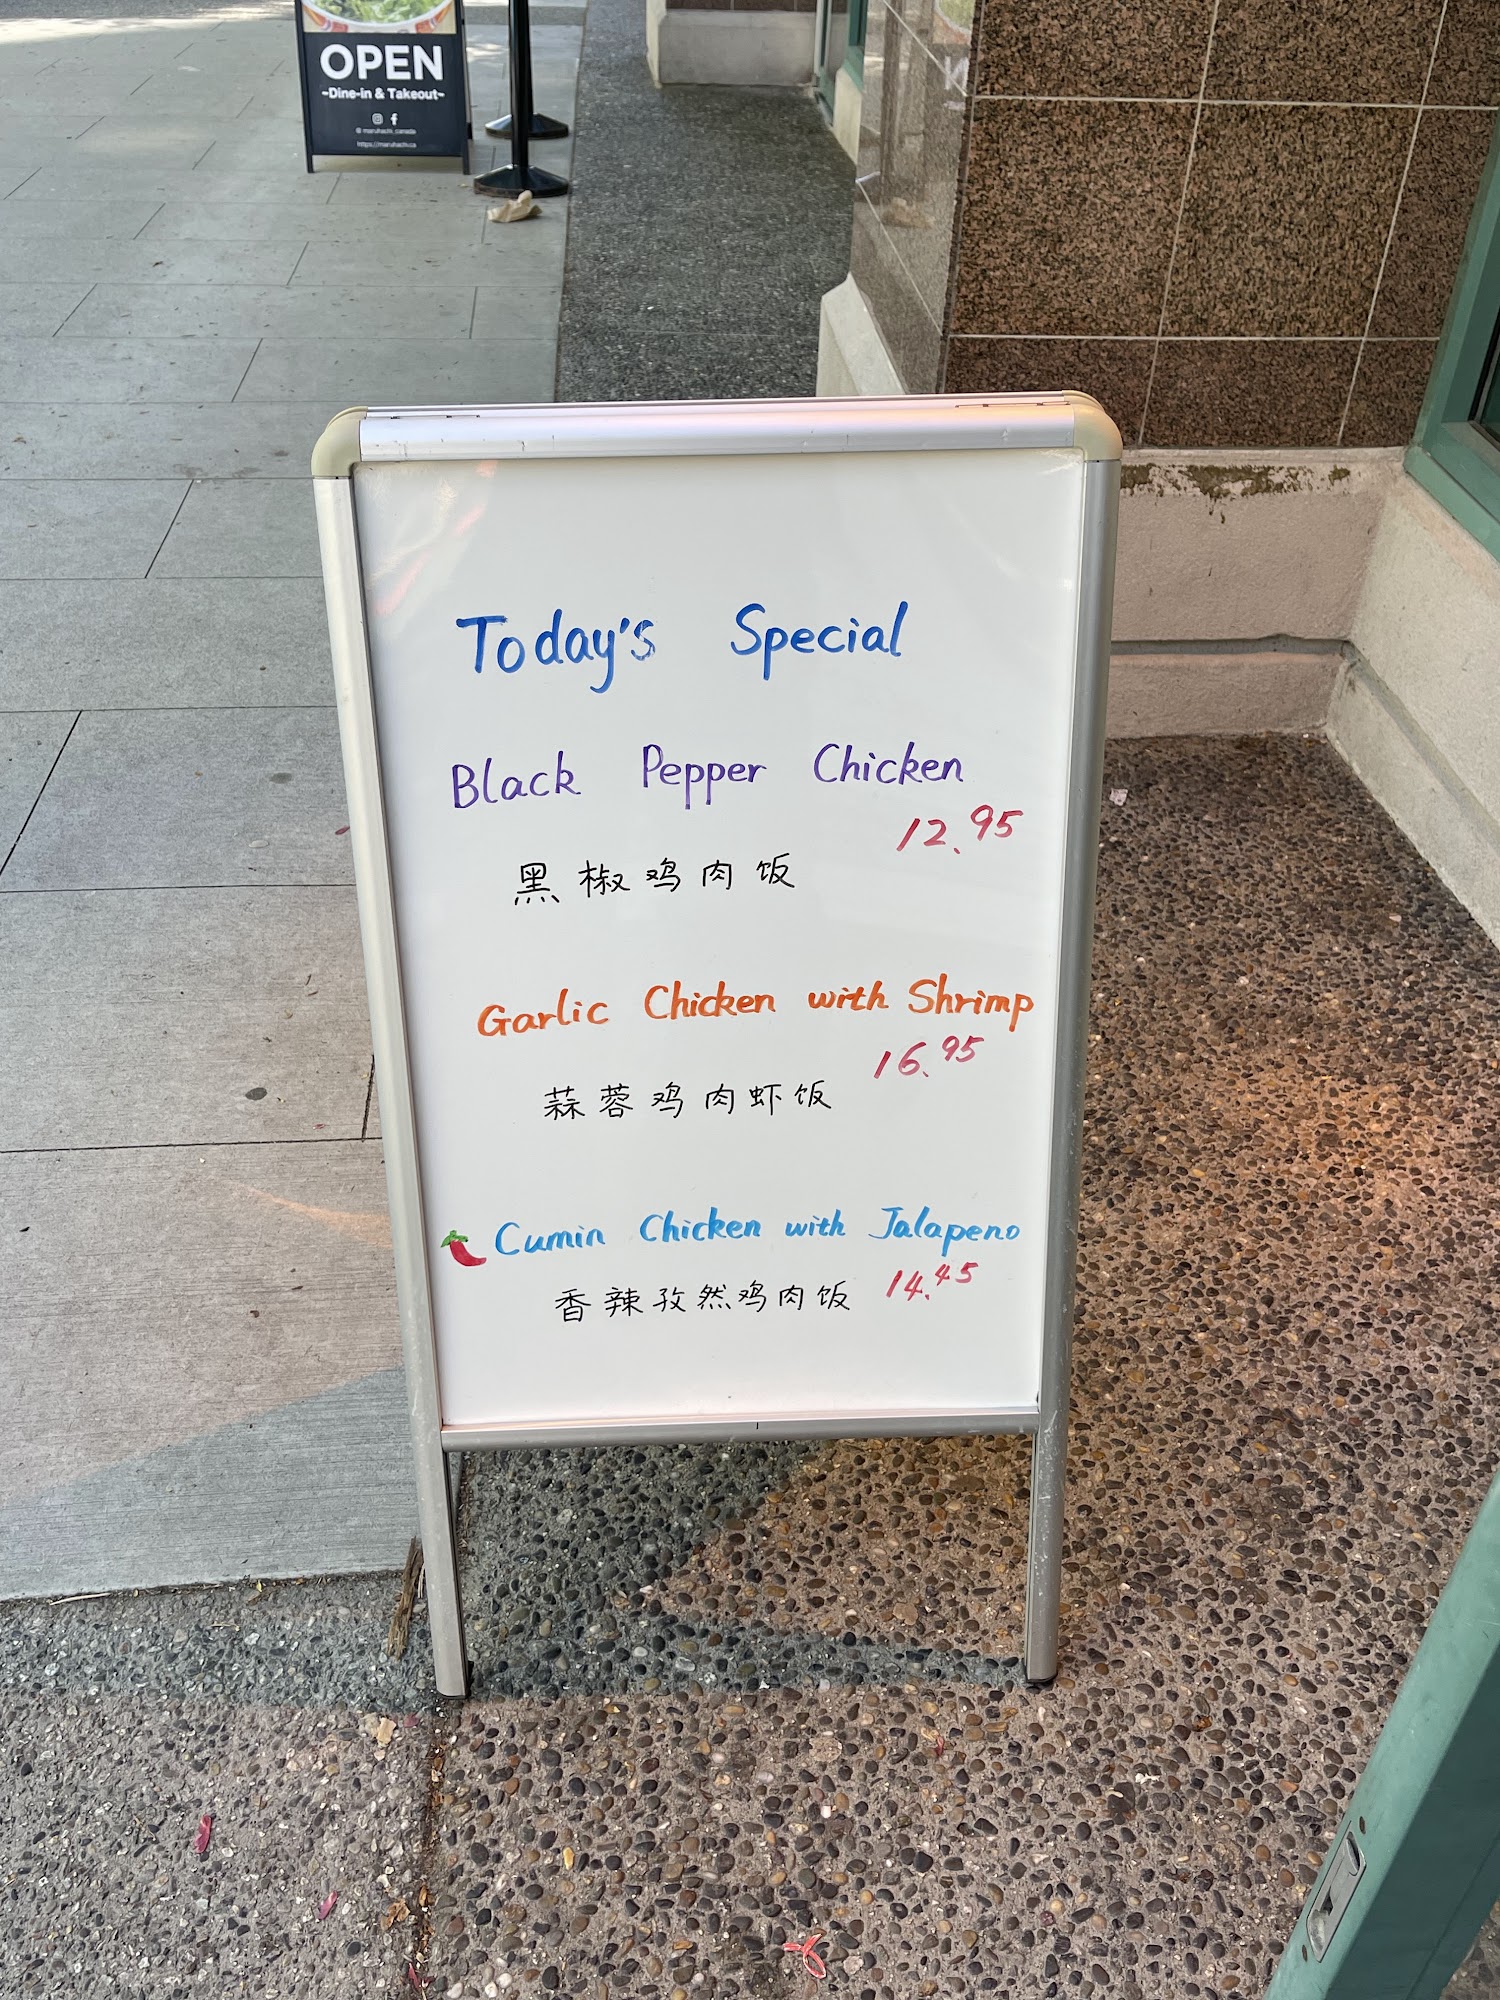 OPEN
-Dine-in & Takeout-
@maruhachi_canada
https://maruhachi.ca
Today's Special
Black Pepper Chicken
12.95
黑椒鸡肉饭
Garlic Chicken with Shrimp
16.95
蒜蓉鸡肉虾饭
Cumin Chicken with Jalapeno
14.45
香辣孜然鸡肉饭